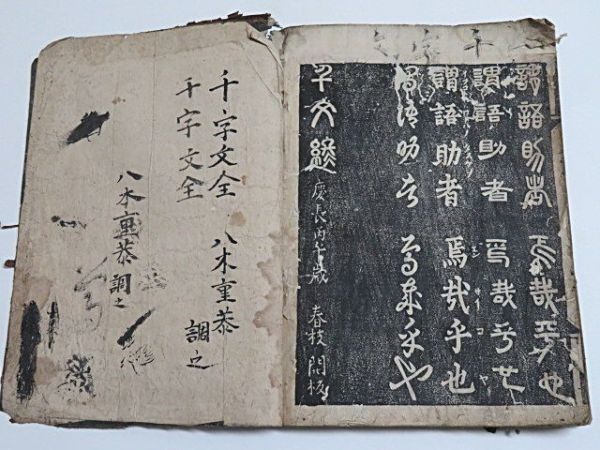 謂語助者 焉哉乎也
謂語助者 焉哉乎也
謂語助者 焉哉乎也
謂語助者 焉哉乎也
千文終 慶長丙午歳 春枝開板
千字文全 八木重恭 調之
千字文全
八木重恭調之